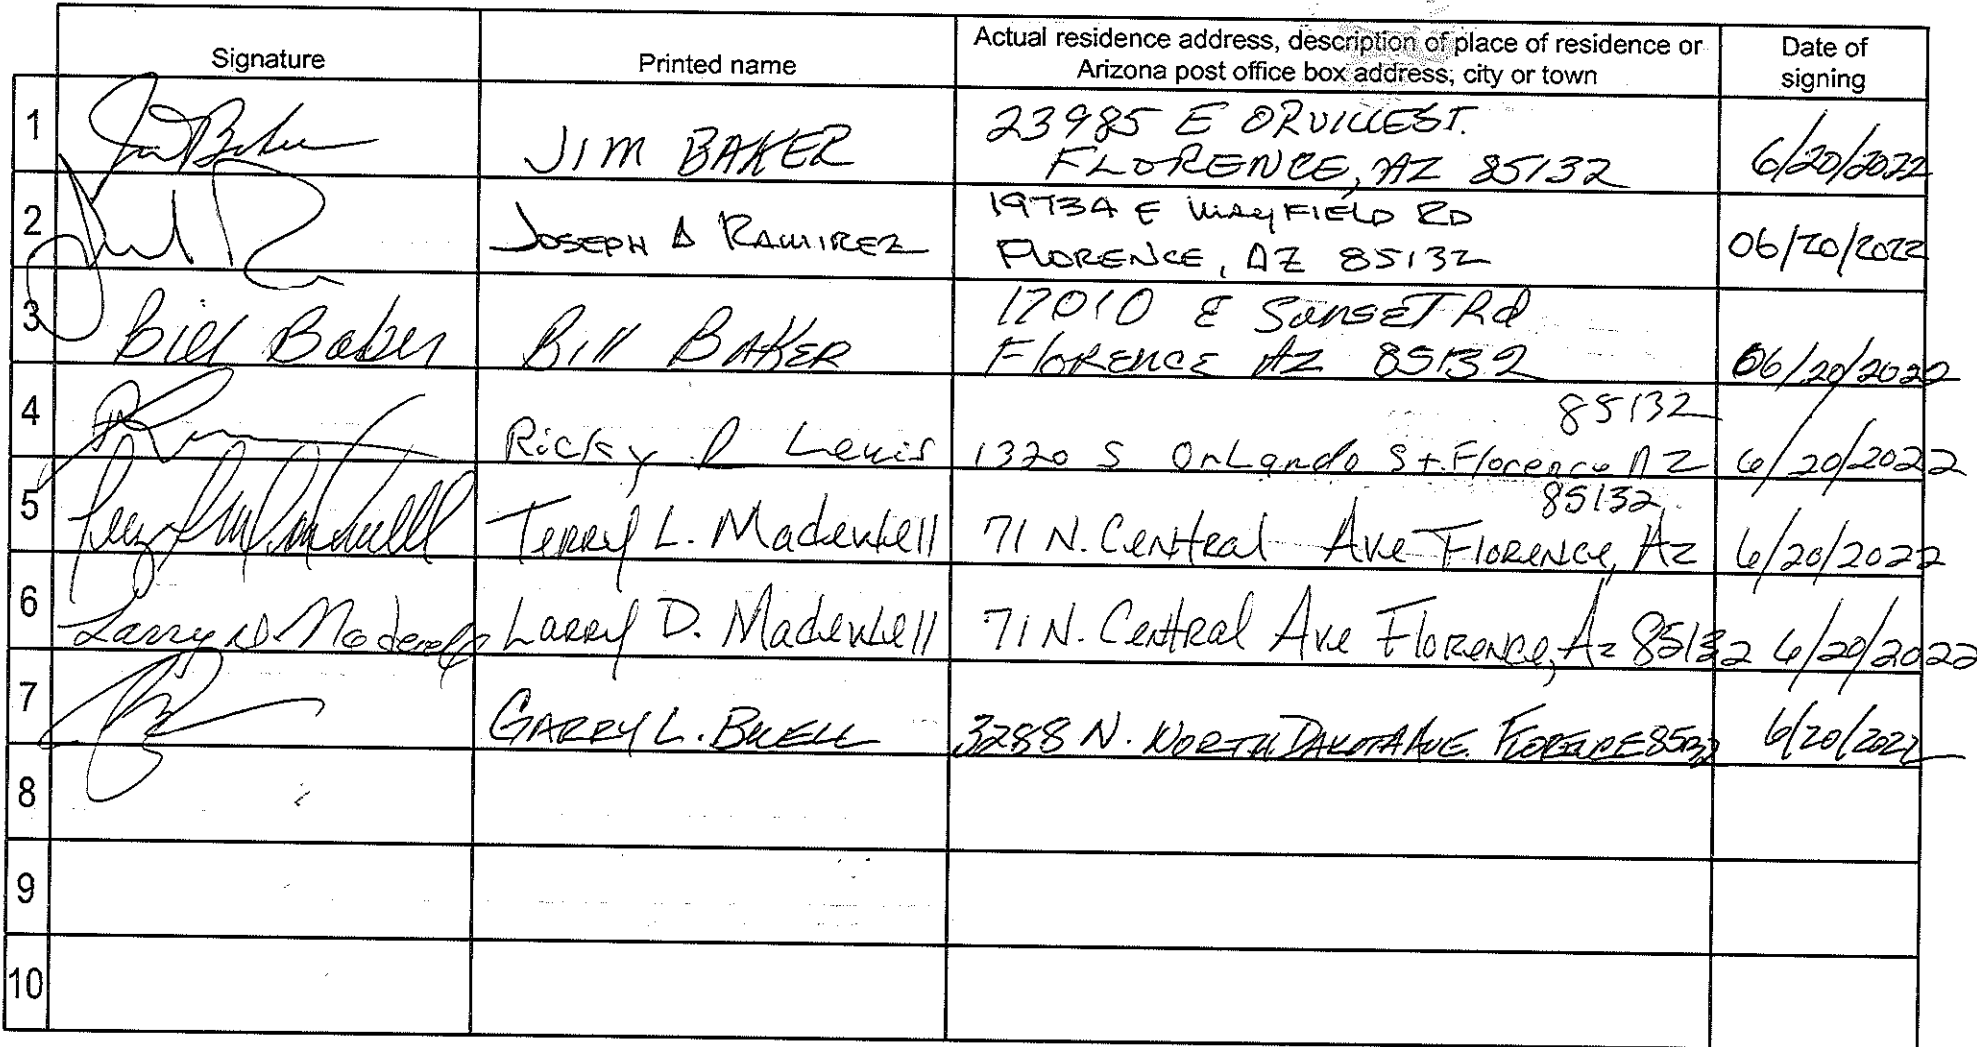 Signature
Printed name
Actual residence address, description of place of residence or
Arizona post office box address, city or town
Date of
signing
1
JIM BAKER
23985 E ORVILLE ST.
FLORENCE, AZ 85132
6/20/2022
2
JOSEPH A RAMIREZ
19734 E MAYFIELD RD
FLORENCE, AZ 85132
06/20/2022
3
Bill Baker
Bill BAKER
17010 E SunSET Rd
FlORENCE AZ 85132
06/20/2022
4
85132
Ricky L Lewis
1320 S OrLando St. Florence AZ
6/20/2022
5
85132
Terry L. Madewell
71 N. Central Ave Florence, Az
6/20/2022
6
Larry D. Madewell
Larry D. Madewell
71 N. Central Ave Florence, Az 85132
6/20/2022
7
GARRY L.
3288 N. NORTH DAKOTA AVE. FLORENCE 85132
6/20/2022
8
9
10